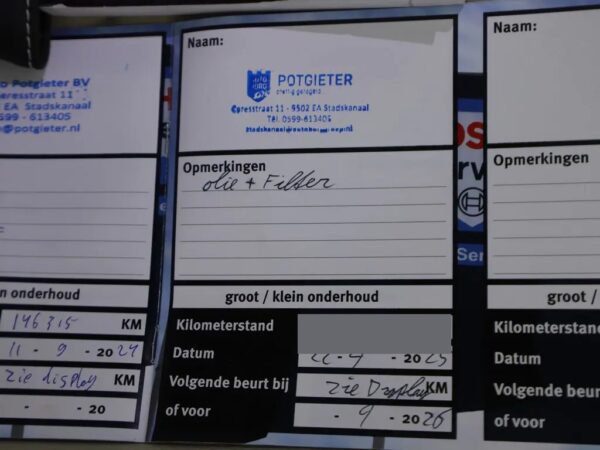 o Potgieter BV
eresstraat 11
EA Stadskanaal
599 - 613405
@potgieter.nl
n onderhoud
146315 KM
11 - 9 - 2024
zie display KM
- - 20
Naam:
POTGIETER
prettig geregeld
Cpresstraat 11 - 9502 EA Stadskanaal
Tel. 0599-613405
Opmerkingen
olie + Filter
groot / klein onderhoud
Kilometerstand
Datum - 2025
Volgende beurt bij zie Display KM
of voor - 9 - 2026
Naam:
Opmerkingen
groot /
Kilometerstand
Datum
Volgende beurt
of voor
OS
rv
Ser